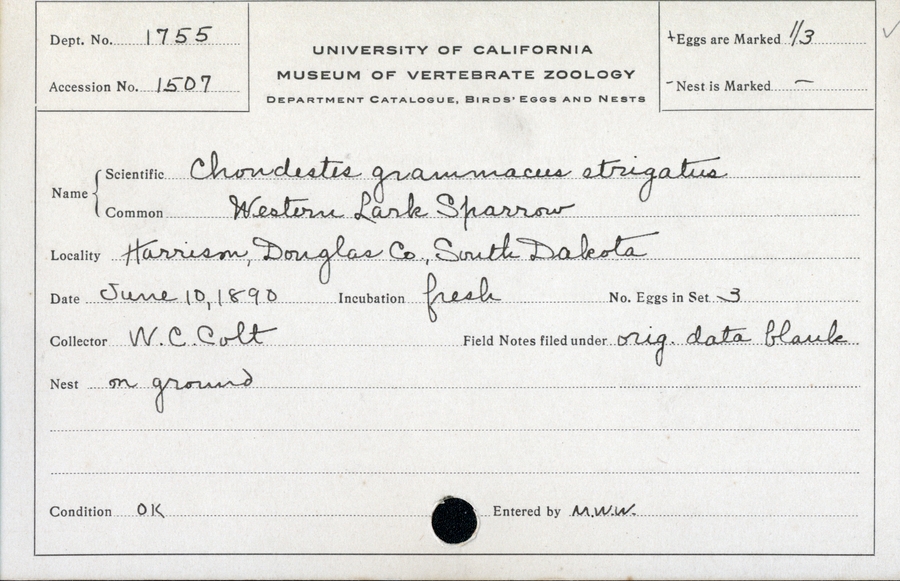 Dept. No. 1755
Accession No. 1507
UNIVERSITY OF CALIFORNIA
MUSEUM OF VERTEBRATE ZOOLOGY
DEPARTMENT CATALOGUE, BIRDS' EGGS AND NESTS
+Eggs are Marked 1/3
-Nest is Marked —
Name { Scientific Chondestes grammacus strigatus
Common Western Lark Sparrow
Locality Harrison, Douglas Co., South Dakota
Date June 10, 1890 Incubation fresh No. Eggs in Set 3
Collector W.C. Colt Field Notes filed under orig. data blank
Nest on ground
Condition OK Entered by M.W.W.